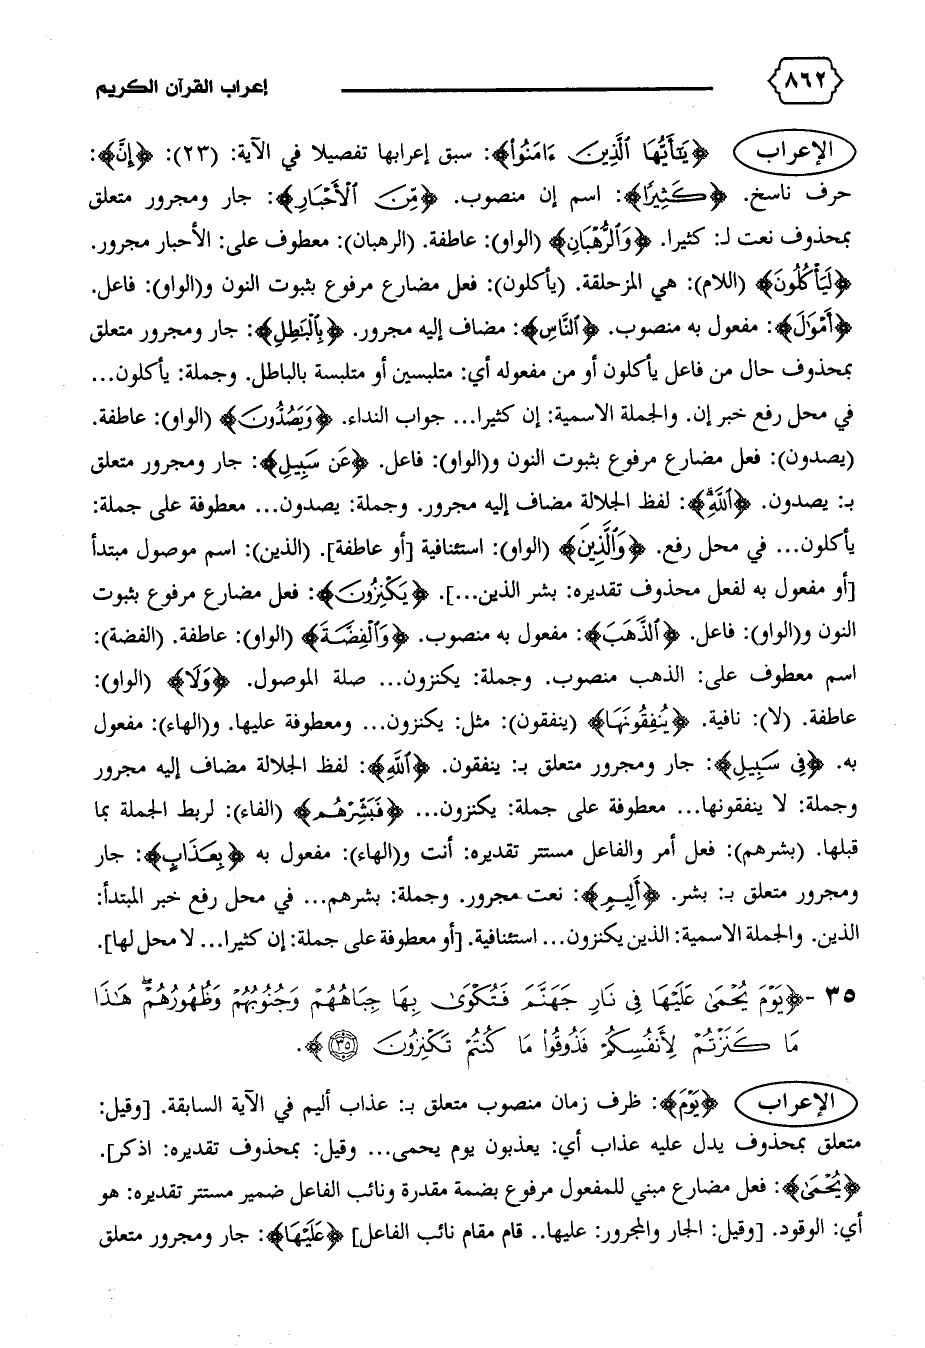 ٨٦٢ إعراب القرآن الكريم
الإعراب ﴿يَٰٓأَيُّهَا ٱلَّذِينَ ءَامَنُوٓا۟﴾: سبق إعرابها تفصيلا في الآية: (٢٣): ﴿إِنَّ﴾:
حرف ناسخ. ﴿كَثِيرًا﴾: اسم إن منصوب. ﴿مِّنَ ٱلْأَحْبَارِ﴾: جار ومجرور متعلق
بمحذوف نعت لـ: كثيرا. ﴿وَٱلرُّهْبَانِ﴾ (الواو): عاطفة. (الرهبان): معطوف على: الأحبار مجرور.
﴿لَيَأْكُلُونَ﴾ (اللام): هي المزحلقة. (يأكلون): فعل مضارع مرفوع بثبوت النون و(الواو): فاعل.
﴿أَمْوَٰلَ﴾: مفعول به منصوب. ﴿ٱلنَّاسِ﴾: مضاف إليه مجرور. ﴿بِٱلْبَٰطِلِ﴾: جار ومجرور متعلق
بمحذوف حال من فاعل يأكلون أو من مفعوله أي: متلبسين أو متلبسة بالباطل. وجملة: يأكلون...
في محل رفع خبر إن. والجملة الاسمية: إن كثيرا... جواب النداء. ﴿وَيَصُدُّونَ﴾ (الواو): عاطفة.
(يصدون): فعل مضارع مرفوع بثبوت النون و(الواو): فاعل. ﴿عَن سَبِيلِ﴾: جار ومجرور متعلق
بـ: يصدون. ﴿ٱللَّهِۗ﴾: لفظ الجلالة مضاف إليه مجرور. وجملة: يصدون... معطوفة على جملة:
يأكلون... في محل رفع. ﴿وَٱلَّذِينَ﴾ (الواو): استئنافية [أو عاطفة]. (الذين): اسم موصول مبتدأ
[أو مفعول به لفعل محذوف تقديره: بشر الذين...]. ﴿يَكْنِزُونَ﴾: فعل مضارع مرفوع بثبوت
النون و(الواو): فاعل. ﴿ٱلذَّهَبَ﴾: مفعول به منصوب. ﴿وَٱلْفِضَّةَ﴾ (الواو): عاطفة. (الفضة):
اسم معطوف على: الذهب منصوب. وجملة: يكنزون... صلة الموصول. ﴿وَلَا﴾ (الواو):
عاطفة. (لا): نافية. ﴿يُنفِقُونَهَا﴾ (ينفقون): مثل: يكنزون... ومعطوفة عليها. و(الهاء): مفعول
به. ﴿فِى سَبِيلِ﴾: جار ومجرور متعلق بـ: ينفقون. ﴿ٱللَّهِ﴾: لفظ الجلالة مضاف إليه مجرور
وجملة: لا ينفقونها... معطوفة على جملة: يكنزون... ﴿فَبَشِّرْهُم﴾ (الفاء): لربط الجملة بما
قبلها. (بشرهم): فعل أمر والفاعل مستتر تقديره: أنت و(الهاء): مفعول به ﴿بِعَذَابٍ﴾: جار
ومجرور متعلق بـ: بشر. ﴿أَلِيمٍ﴾: نعت مجرور. وجملة: بشرهم... في محل رفع خبر المبتدأ:
الذين. والجملة الاسمية: الذين يكنزون... استئنافية. [أو معطوفة على جملة: إن كثيرا... لا محل لها].
٣٥ -﴿يَوْمَ يُحْمَىٰ عَلَيْهَا فِى نَارِ جَهَنَّمَ فَتُكْوَىٰ بِهَا جِبَاهُهُمْ وَجُنُوبُهُمْ وَظُهُورُهُمْۖ هَٰذَا
مَا كَنَزْتُمْ لِأَنفُسِكُمْ فَذُوقُوا۟ مَا كُنتُمْ تَكْنِزُونَ ۝٣٥﴾.
الإعراب ﴿يَوْمَ﴾: ظرف زمان منصوب متعلق بـ: عذاب أليم في الآية السابقة. [وقيل:
متعلق بمحذوف يدل عليه عذاب أي: يعذبون يوم يحمى... وقيل: بمحذوف تقديره: اذكر].
﴿يُحْمَىٰ﴾: فعل مضارع مبني للمفعول مرفوع بضمة مقدرة ونائب الفاعل ضمير مستتر تقديره: هو
أي: الوقود. [وقيل: الجار والمجرور: عليها.. قام مقام نائب الفاعل] ﴿عَلَيْهَا﴾: جار ومجرور متعلق